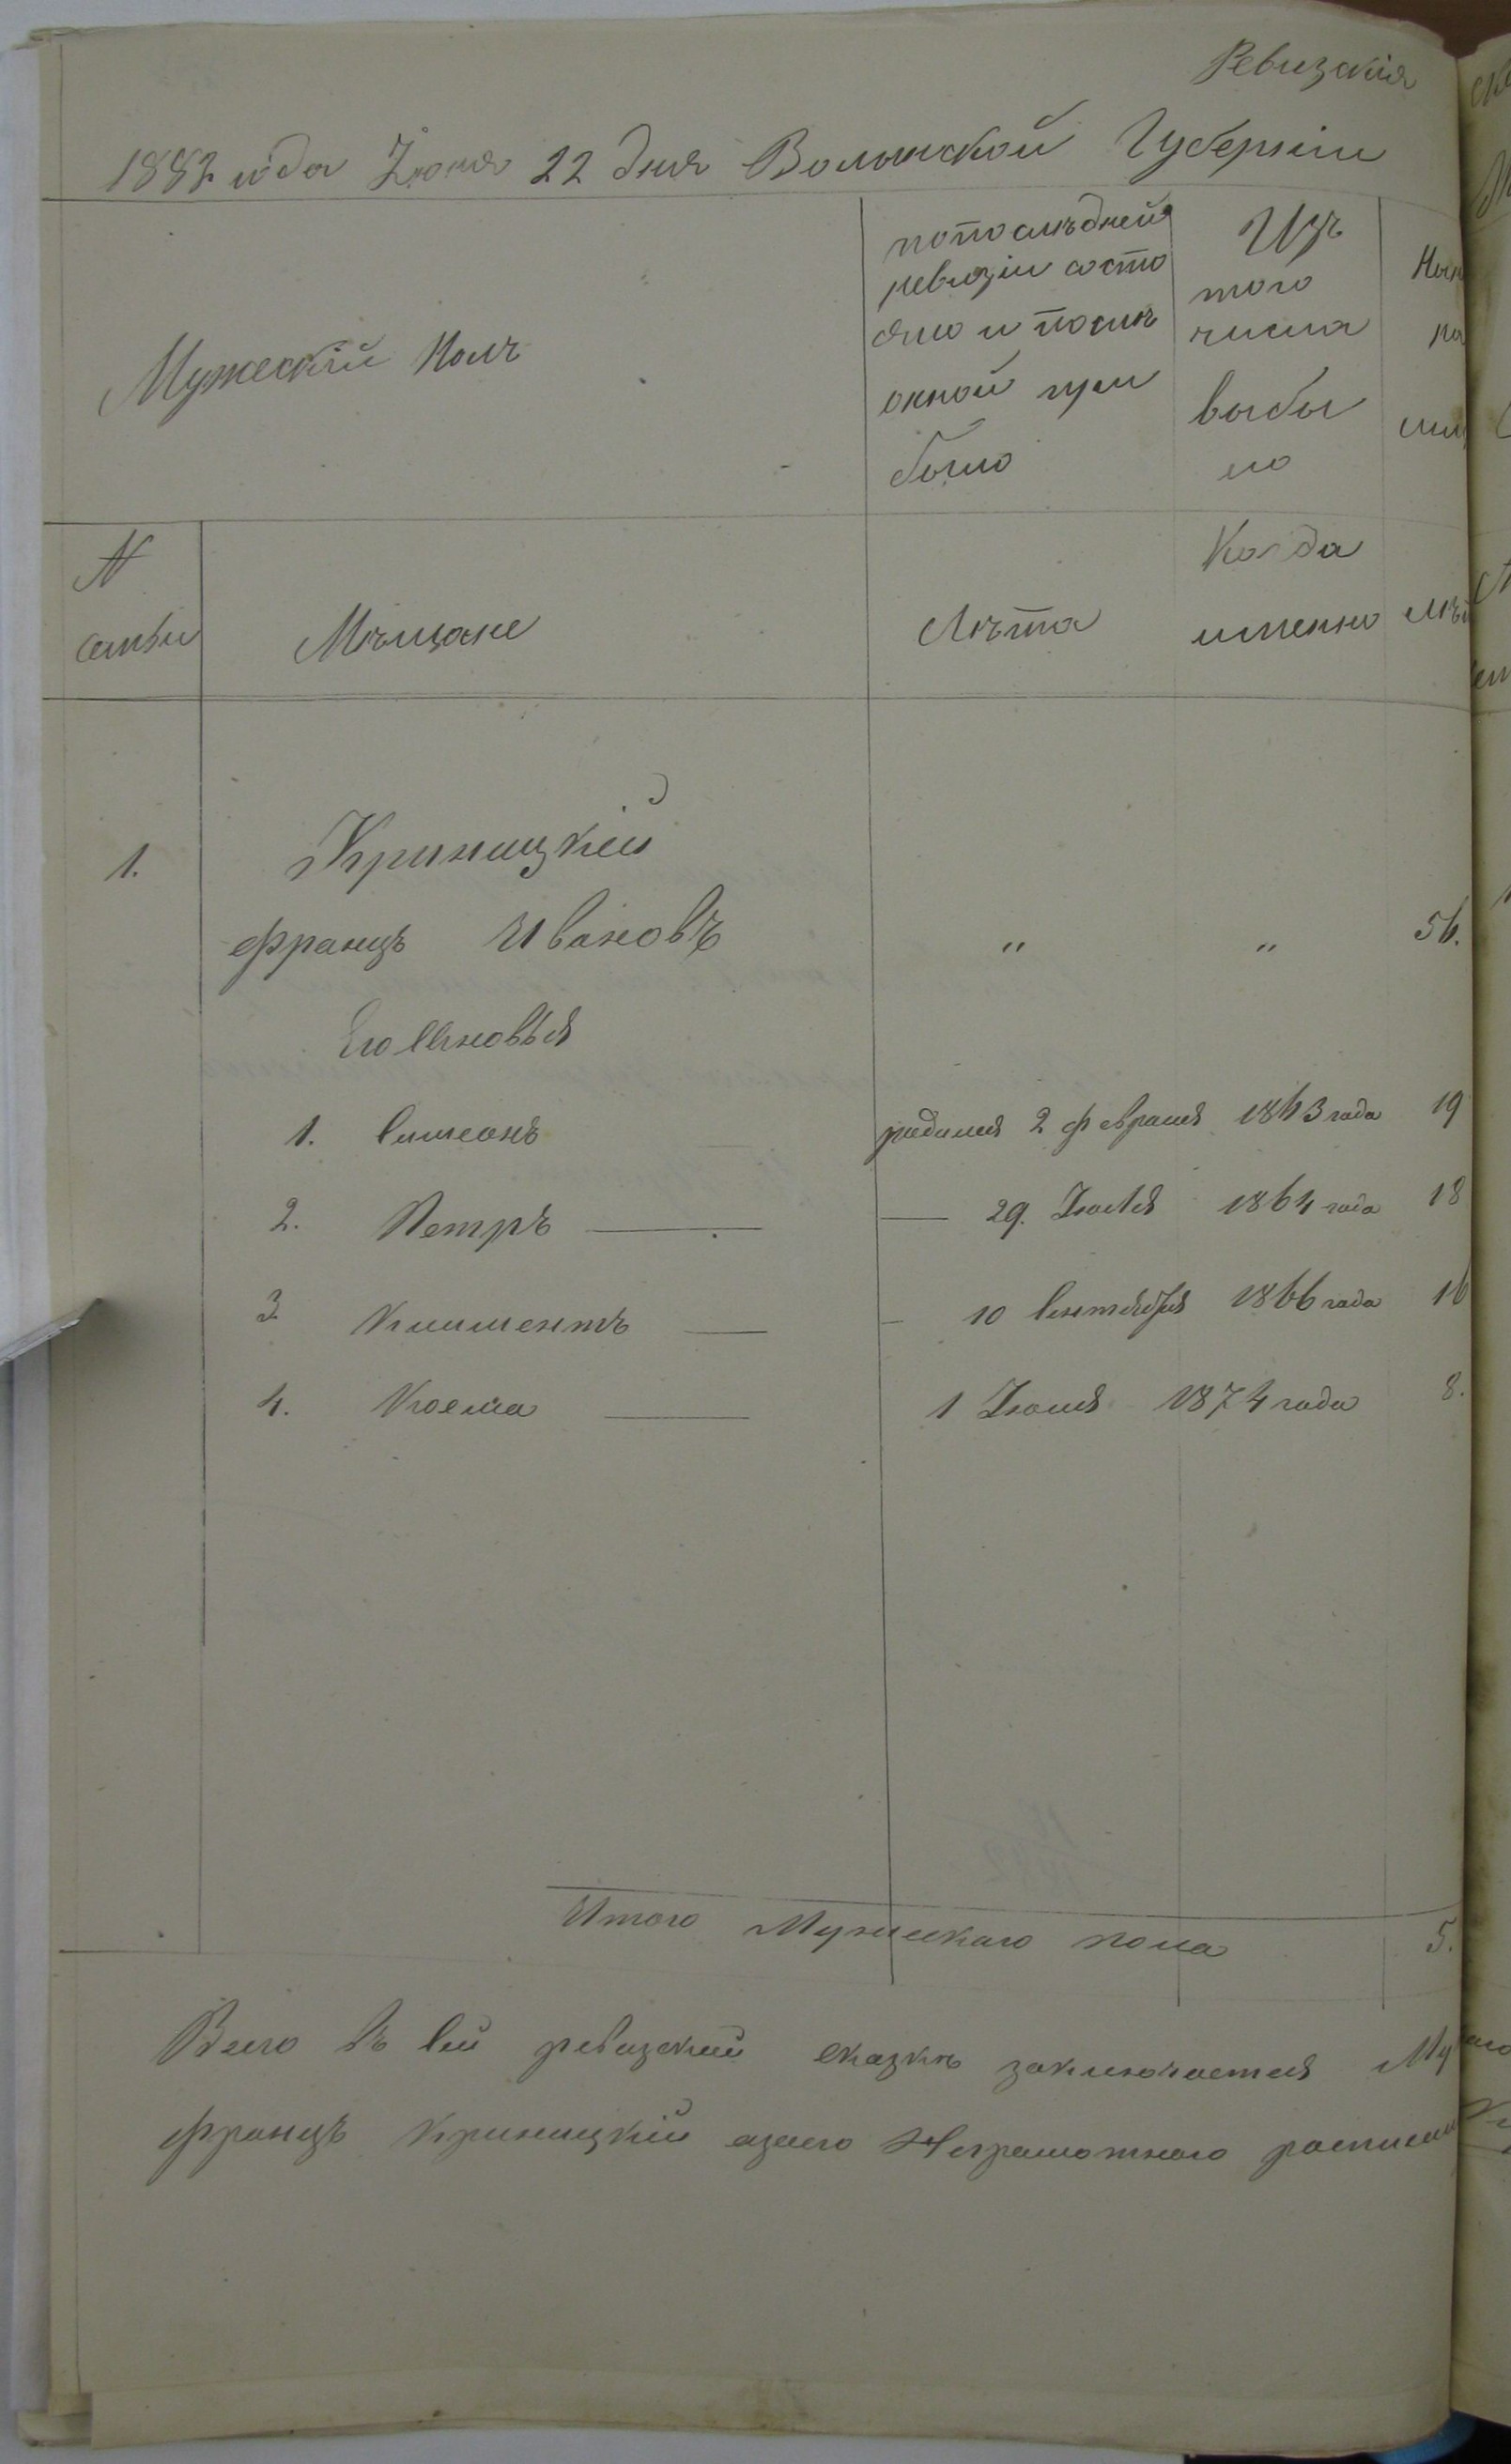 Ревизскія
1882 года Іюня 22 дня Волынской Губерніи
Мужескій Полъ
попослѣдней
ревизіи состо
яло и послѣ
оной при
было
Изъ
того
числа
выбы
ло
N
семьи
Мѣщане
Лѣта
Когда
именно
1.
Криницкій
Францъ Ивановъ " " 56.
Его сыновья
1. Симеонъ родился 2 февраля 1863 года 19
2. Петръ — — 29. Іюля 1864 года 18
3. Климентъ — — 10 Сентября 1866 года 16
4. Косма — 1 Іюля 1874 года 8.
Итого Мужескаго пола 5.
Всего въ сей ревизской сказкѣ заключается
Францъ Криницкій азаего Неграмотного